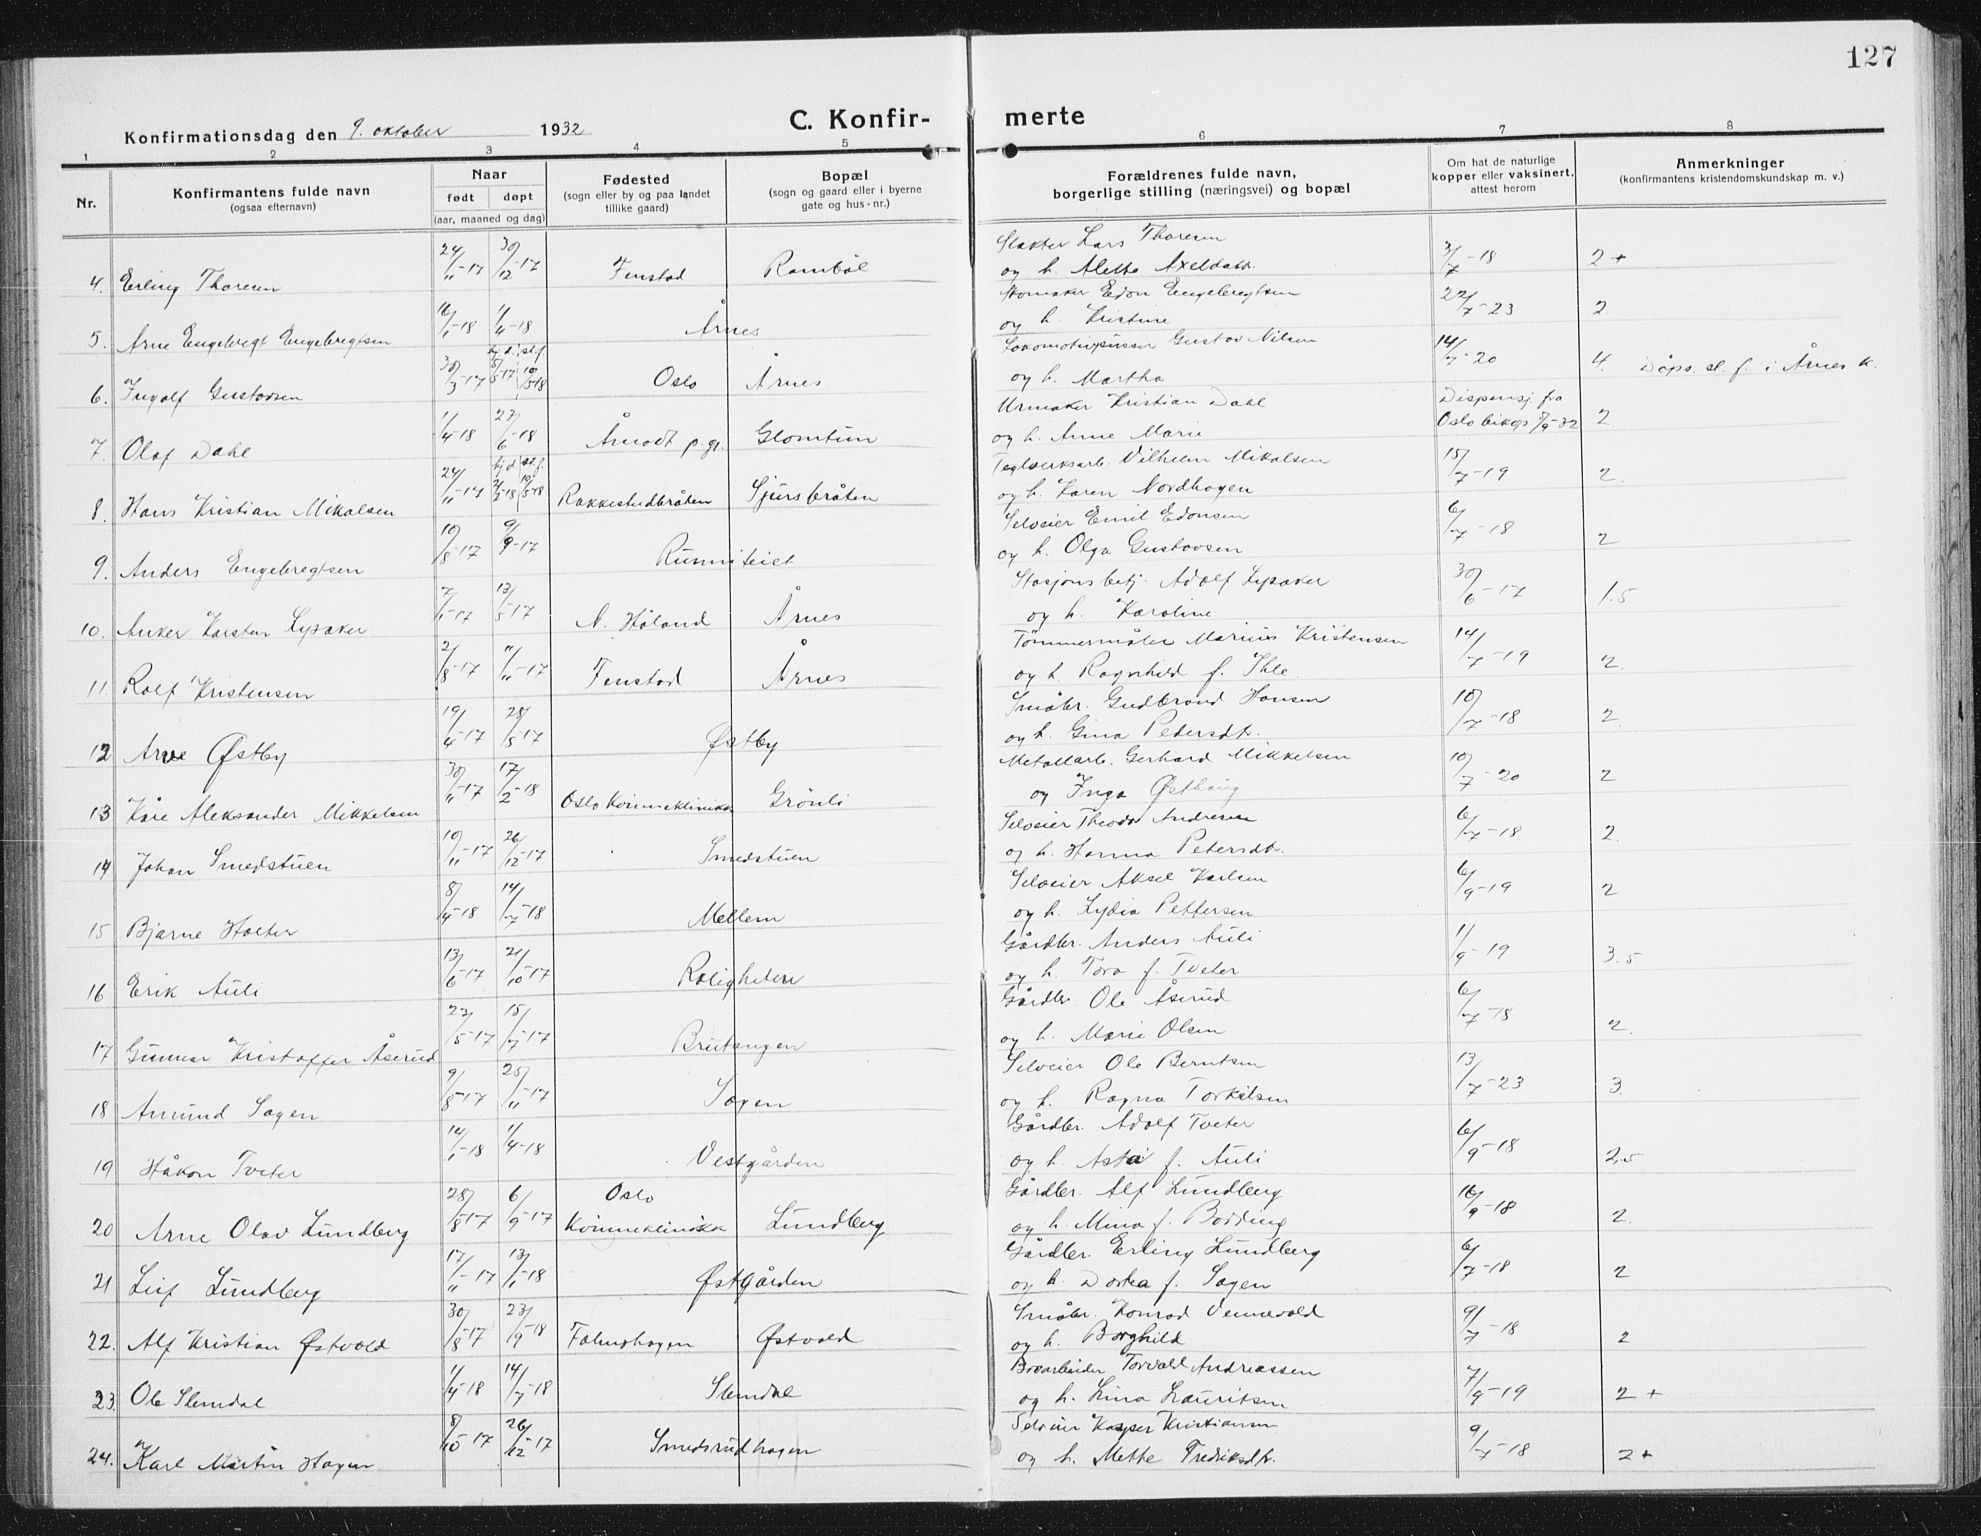 127
Konfirmationsdag den 9. oktober 1932 C. Konfir- merte
1 2 3 4 5 6 7 8
Nr.
Konfirmantens fulde navn
(ogsaa efternavn)
Naar
født døpt
(aar, maaned og dag)
Fødested
(sogn eller by og paa landet
tillike gaard)
Bopæl
(sogn og gaard eller i byerne
gate og hus-nr.)
Forældrenes fulde navn,
borgerlige stilling (næringsvei) og bopæl
Om hat de naturlige
kopper eller vaksinert,
attest herom
Anmerkninger
(konfirmantens kristendomskundskap m. v.)
Slakter Lars Thoresen
4. Erling Thoresen 24/11-17 30/12-17 Fenstad Rambøl og h. Alette Axeldatr. 3/7-18 2+
Skomaker Edon Engebregtsen
5. Arne Engebregt Engebregtsen 16/1-18 1/4-18 Årnes og h. Kristine 22/7-23 2
Lokomotivpusser Gustav Nilsen
6. Ingolf Gustavsen 30/3-17 hj.d. 5/5-17 st.f. 10/5-18 Oslo Årnes og h. Martha 14/7-20 4. Dåps. st. f. i Årnes k.
Urmaker Kristian Dahl Dispensj. fra
7. Olaf Dahl 1/4-18 23/6-18 Åmodt p.gj. Glomtun og h. Anne Marie Oslo biksp. -32 2
Teglverksarb. Vilhelm Mikalsen
8. Hans Kristian Mikalsen 24/11-17 hj.d. 2/2-18 st.f. 10/5-18 Rakkestadbråten Sjursbråten og h. Karen Nordhagen 15/7-19 2.
Selveier Emil Edonsen
9. Anders Engebregtsen 10/8-17 9/9-17 Runniteiet og h. Olga Gustavsen 6/7-18 2
Stasjonsbetj. Adolf Lysaker
10. Anker Karsten Lysaker 7/1-17 13/5-17 N. Høland Årnes og h. Karoline 30/6-17 1.5
Tømmermåler Marius Kristensen
11. Rolf Kristensen 2/8-17 11/11-17 Fenstad Årnes og h. Ragnhild f. Ihle 14/7-19 2.
Småbr. Gudbrand Hansen
12 Arve Østby 19/4-17 28/5-17 Østby og h. Gina Pedersdtr. 10/7-18 2.
Metallarb. Gerhard Mikkelsen
13 Kåre Aleksander Mikkelsen 30/11-17 17/2-18 Oslo Kvinneklinikk Grönli og Inga Østhaug 10/7-20 2
Selveier Theodor Andresen
14 Johan Smedstuen 10/11-17 26/12-17 Smedstuen og h. Hanna Petersdtr. 6/7-18 2.
Selveier Aksel Karlsen
15 Bjarne Holter 8/4-18 14/7-18 Mellem og h. Lydia Pettersen 6/9-19 2
Gårdbr. Anders Auli
16 Erik Auli 13/6-17 21/10-17 Roligheten og h. Tora f. Tveter 1/9-19 3.5
Gårdbr. Ole Åserud
17 Gunnar Kristoffer Åserud 27/5-17 15/7-17 Brutangen og h. Marie Olsen 6/7-18 2.
Selveier Ole Berntsen
18 Amund Sagen 9/8-17 25/11-17 Sagen og h. Ragna Torkilsen 13/7-23 3.
Gårdbr. Adolf Tveter
19 Håkon Tveter 14/1-18 1/4-18 Vestgården og h. Asta f. Auli 6/9-18 2.5
Gårdbr. Alf Lundberg
20 Arne Olav Lundberg 28/8-17 6/9-17 Oslo Kvinneklinikk Lundberg og h. Mina f. Bodding 16/9-18 2.
Gårdbr. Erling Lundberg
21 Leif Lundberg 17/11-17 13/1-18 Østgården og h. Dorthea f. Sagen 6/7-18 2
Småbr. Konrad Vennevold
22. Alf Kristian Østvold 30/8-17 23/9-18 Falmohagen Østvold og h. Borghild 9/7-18 2
Broarbeider Torvald Andreassen
23. Ole Slemdal 1/4-18 14/7-18 Slemdal og h. Lina Lauritsen 7/9-19 2+
Selveier Kasper Kristiansen
24. Karl Martin Hagen 8/10-17 26/12-17 Smedsrudhagen og h. Mette Fredriksdtr. 9/7-18 2+